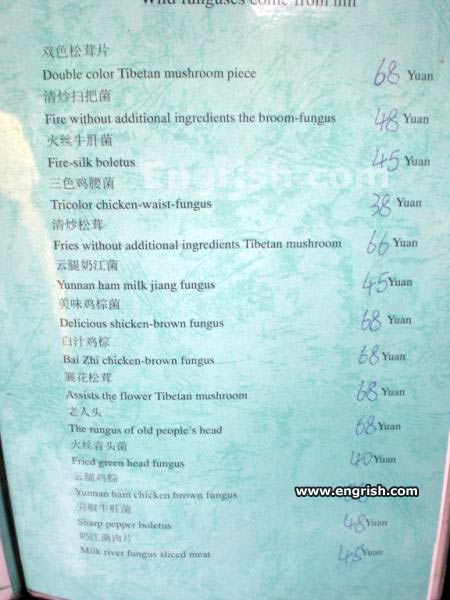 Wild funguses come from hill
双色松茸片
Double color Tibetan mushroom piece 68 Yuan
清炒扫把菌
Fire without additional ingredients the broom-fungus 48 Yuan
火丝牛肝菌
Fire-silk boletus 45 Yuan
Engrish.com
三色鸡腰菌
Tricolor chicken-waist-fungus 38 Yuan
清炒松茸
Fries without additional ingredients Tibetan mushroom 66 Yuan
云腿奶江菌
Yunnan ham milk jiang fungus 45 Yuan
美味鸡棕菌
Delicious shicken-brown fungus 68 Yuan
白汁鸡棕
Bai Zhi chicken-brown fungus 68 Yuan
襄花松茸
Assists the flower Tibetan mushroom 68 Yuan
老人头
The rungus of old people's head 68 Yuan
火丝青头菌
Fried green head fungus 40 Yuan
云腿鸡棕
www.engrish.com
Yunnan ham chicken brown fungus
尖椒牛肝菌
Sharp pepper boletus 48 Yuan
奶江菌肉片
Milk river fungus sliced meat 45 Yuan